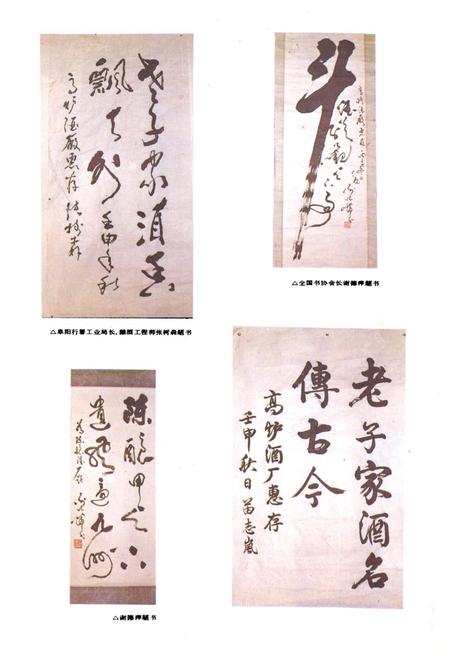 老子家酒香
飘天外 壬申年秋
高炉酒厰惠存 张树森
斗
△阜阳行署工业局长,酿酒工程师张树森题书
△全国书协会长谢德萍题书
陈酿甲天下
遍九州
△谢德萍题书
老子家酒名
傳古今
高炉酒厂惠存
壬申秋日 苗志嵐